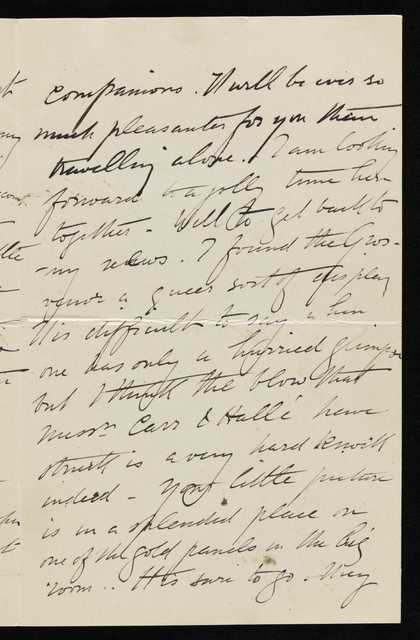 companions. It will be ever so
much pleasanter for you than
travelling alone. I am looking
forward to a jolly time here
together - Well to get back to
-my news. I found the Gros-
venor a queer sort of display
It is difficult to say when
one has only a hurried glimpse
but I think the blow that
Messrs Carr & Hallé have
struck is a very hard
indeed - your little picture
is in a splendid place on
one of the gold panels in the big
room.. It is sure to go. They